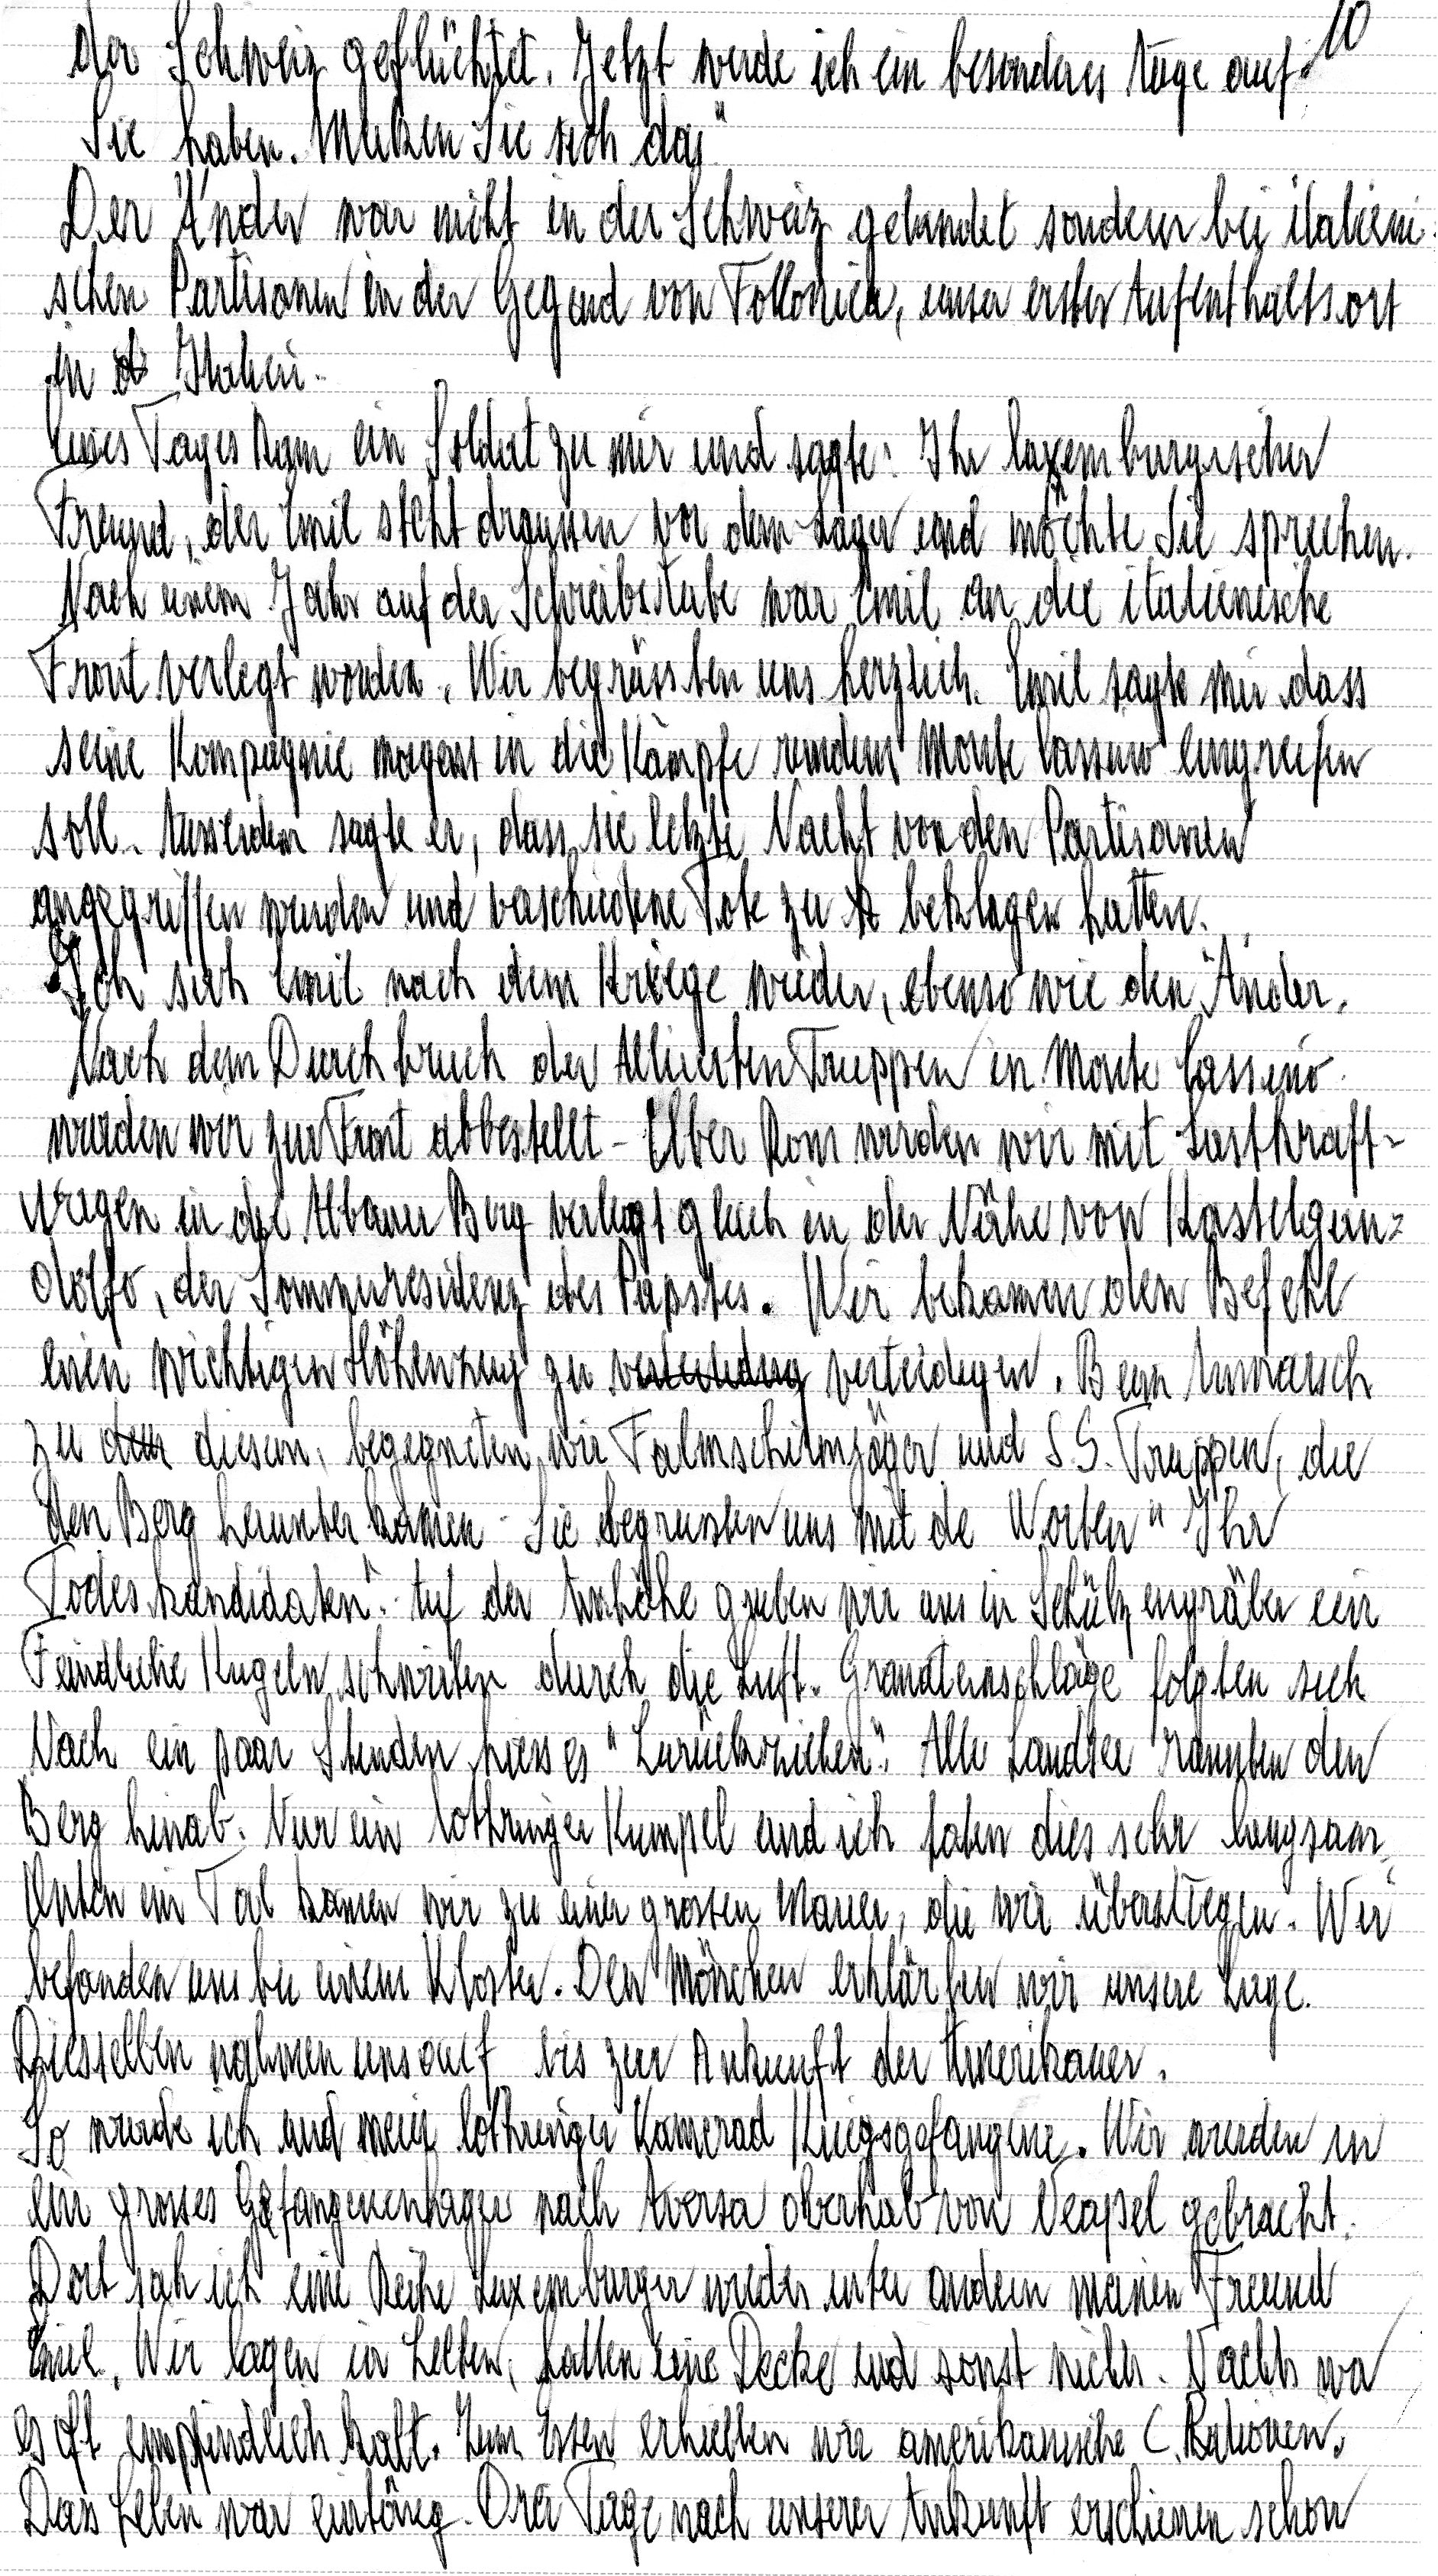 10
der Schweiz geflüchtet. Jetzt werde ich ein besonderes Auge auf
Sie haben. Merken Sie sich das"
Der Änder war nicht in der Schweiz gelandet sondern bei italieni-
schen Partisanen in der Gegend von Follonica, unser erster Aufenthaltsort
in Italien.
Eines Tages kam ein Soldat zu mir und sagte: Ihr luxemburgischer
Freund, der Emil steht draussen vor dem Lager und möchte Sie sprechen.
Nach einem Jahr auf der Schreibstube war Emil an die italienische
Front verlegt worden. Wir begrüssten uns herzlich. Emil sagte mir dass
seine Kompagnie morgens in die Kämpfe rundens Monte Cassino eingreifen
soll. Ausserdem sagte er, dass sie letzte Nacht von den Partisanen
angegriffen wurden und verschiedene Tote zu beklagen hatten.
Ich sah Emil nach dem Kriege wieder, ebenso wie den Änder.
Nach dem Durchbruch der Alliierten Truppen in Monte Cassino
wurden wir zur Front abbestellt - Über Rom wurden wir mit Lastkraft-
wagen in die Albaner Berg verlegt gleich in der Nähe von Kastelgan-
dolfo, der Sommerresidenz des Papstes. Wir bekamen den Befehl
einen wichtigen Höhenzug zu verteidigen. Beim Anmarsch
zu diesem, begegneten wir Falmschirmjäger und S.S. Truppen, die
den Berg herunter kamen - Sie begrussten uns mit de Worten "Ihr
Todeskandidaten". Auf der Anhöhe gruben wir uns in Schützengräber ein
Feindliche Kugeln schwirten durch die Luft. Granateinschläge folgten sich
Nach ein paar Stunden hiess es "Zurückziehen". Alle Landser rannten den
Berg hinab. Nur ein lothringer Kumpel und ich taten dies sehr langsam.
Unten im Tal kamen wir zu einer grossen Mauer, die wir überstiegen. Wir
befanden uns bei einem Kloster. Den Mönchen erklärten wir unsere Lage.
Diesselben nahmen uns auf bis zur Ankunft der Amerikaner.
So wurde ich und mein lothringer Kamerad Kriegsgefangene. Wir wurden in
ein grosses Gefangenenlager nach Aversa oberhalb von Neapel gebracht.
Dort sah ich eine Reihe Luxemburger wieder unter andern meinen Freund
Emil. Wir lagen in Zelten, hatten eine Decke und sonst nichts. Nachts wa
es oft empfindlich kalt. Zum Essen erhielten wir amerikanische C. Rationen.
Das Leben war eintönig. Drei Tage nach unserer Ankunft erschienen schon